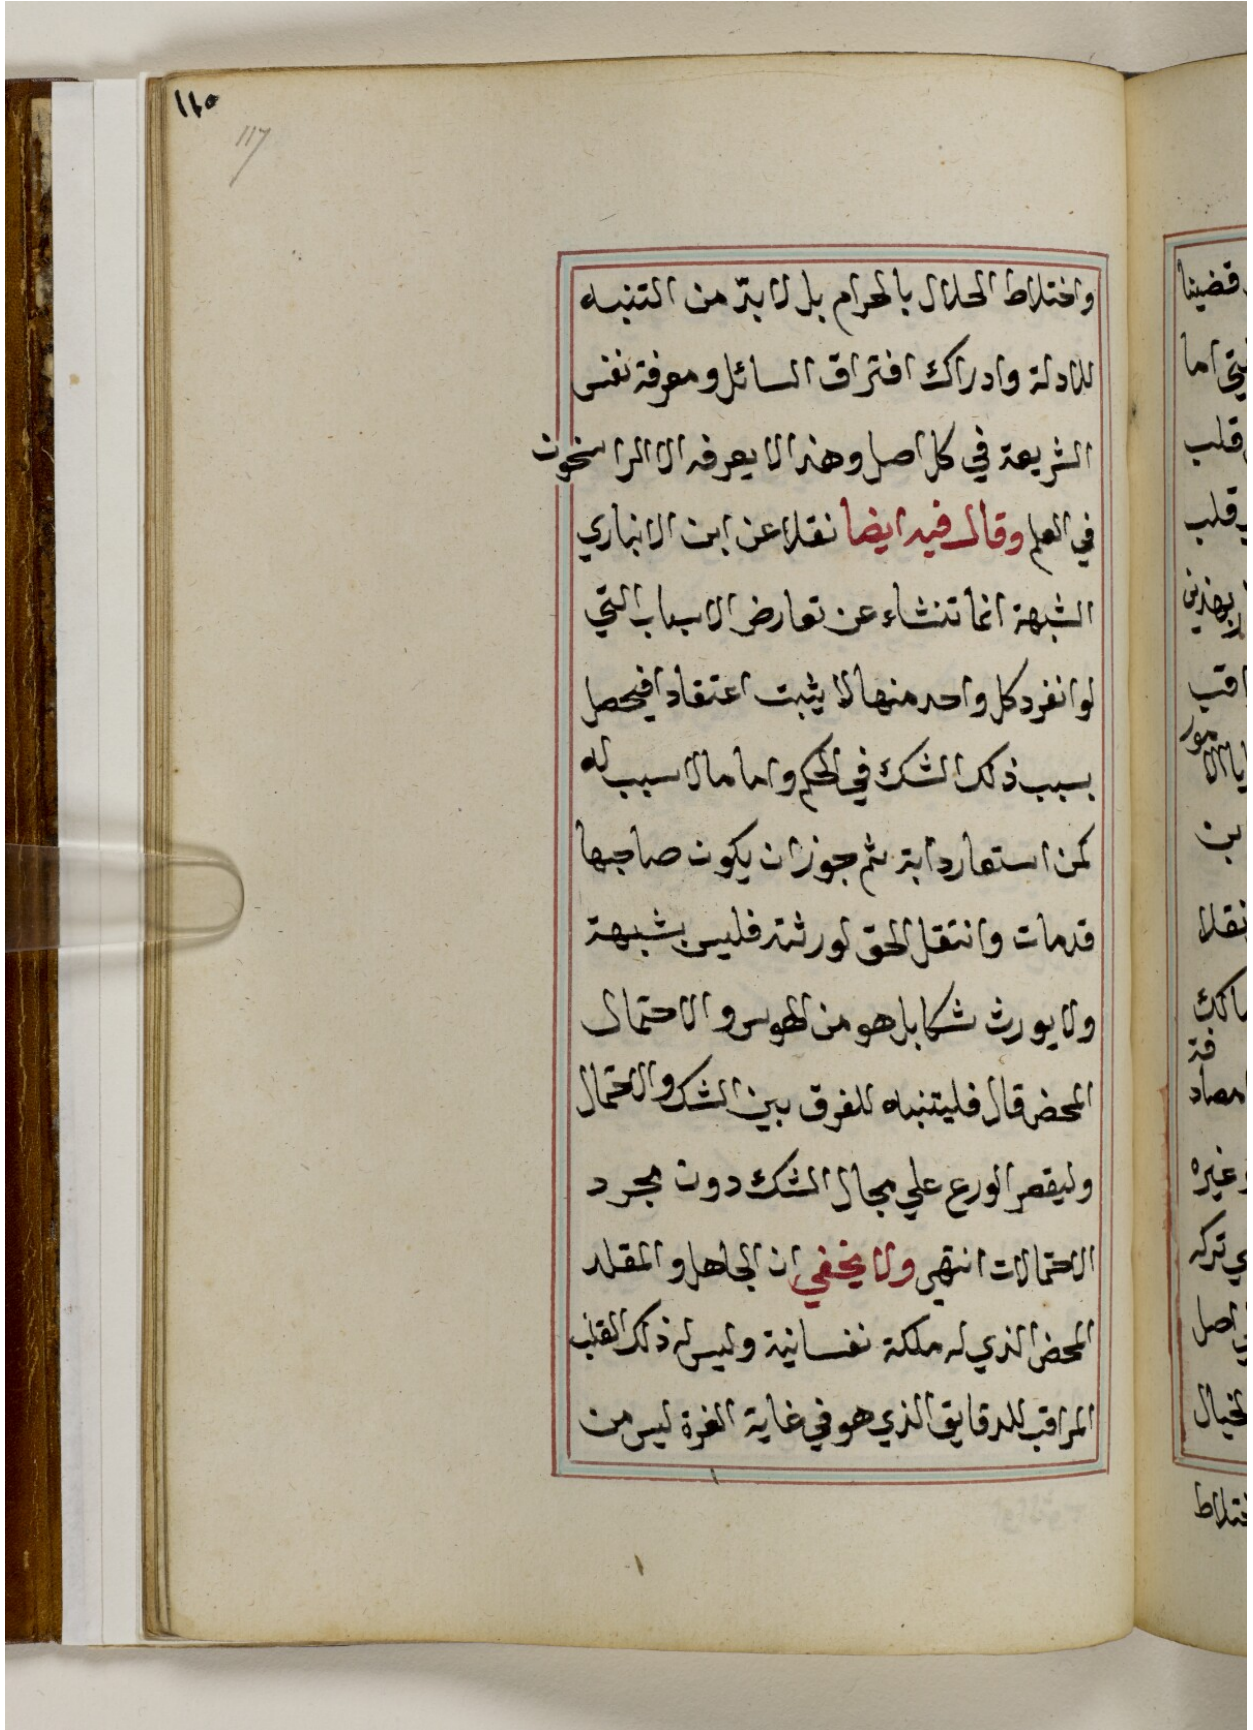 ١١٥
117
واختلاط الحلال بالحرام بل لا بدّ من التنبه
للادلة وادراك افتراق السائل ومعرفة نفس
الشريعة في كل اصل وهذا لا يعرفه الا الراسخون
في العلم وقال فيه ايضا نقلا عن ابن الانباري
الشبهة انما تنشاء عن تعارض الاسباب التي
لو انفرد كل واحد منها لا يثبت اعتقادا فيحصل
بسبب ذلك الشك في الحكم واما ما لا سبب له
كمن استعار دابة ثم جوز ان يكون صاحبها
قد مات وانتقل الحق لورثته فليس بشبهة
ولا يورث شكا بل هو من الهوس والاحتمال
المحض قال فليتنبه للفرق بين الشك والاحتمال
وليقصر الورع علي مجال الشك دون مجرد
الاحتمالات انتهى ولا يخفي ان الجاهل والمقلد
المحض الذي له ملكة نفسانية وليس له ذلك القلب
المراقب للدقايق الذي هو في غاية الغرة ليس من
قضينا
اما
قلب
قلب
بهذين
مور
بن
نقلا
فة
وغيره
تركه
اصل